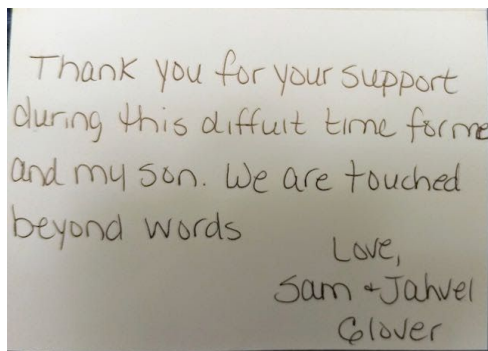 Thank you for your support
during this diffuit time for me
and my son. We are touched
beyond words
Love,
Sam + Jahvel
Glover